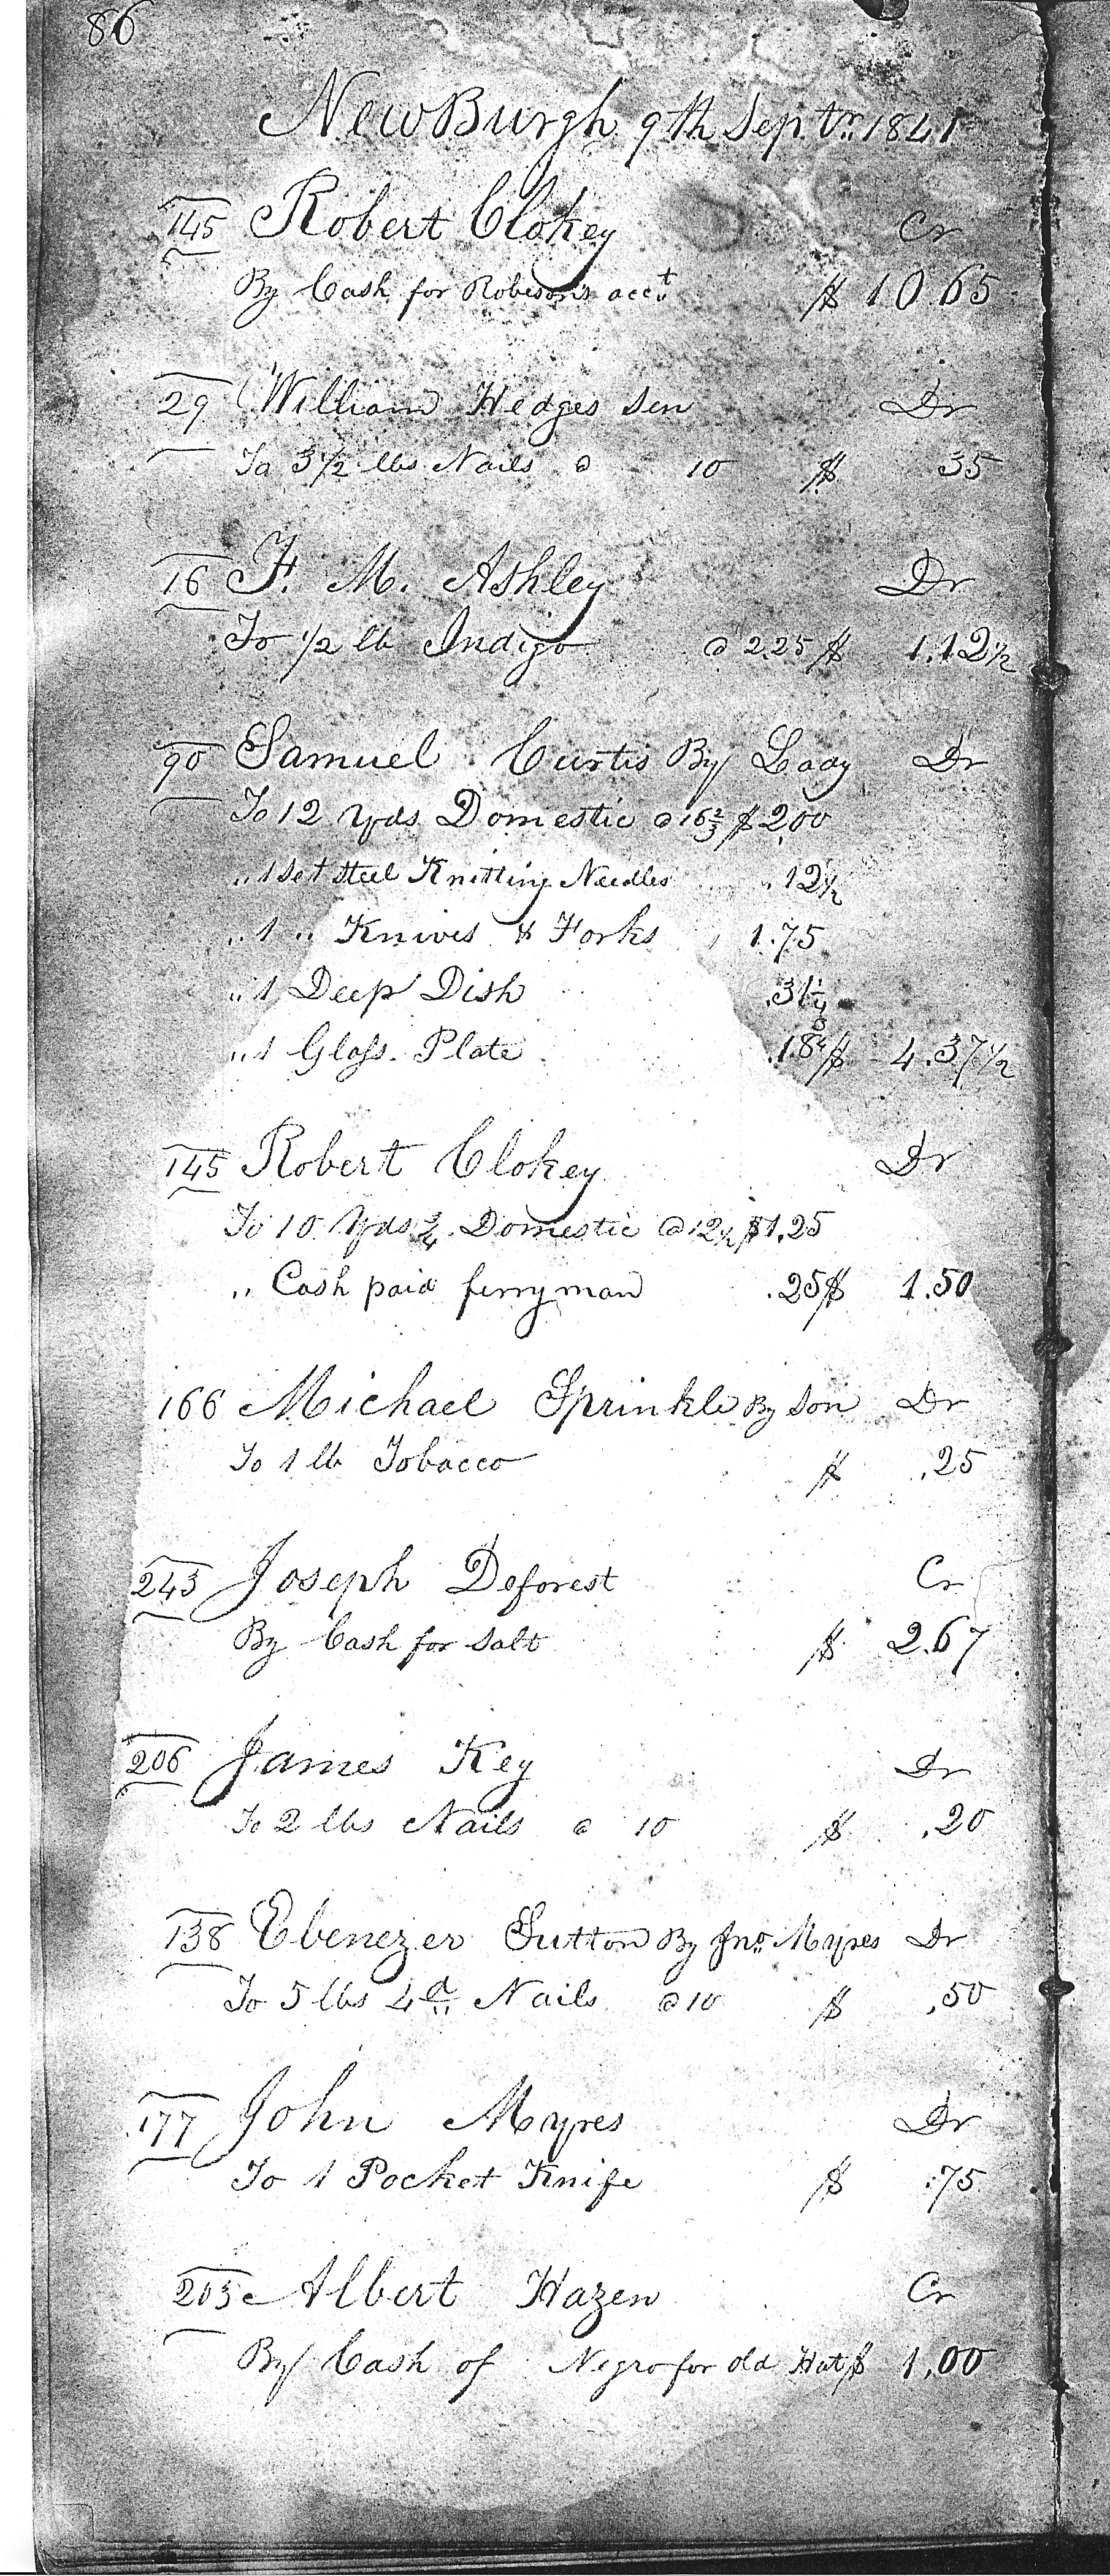 86
NewBurgh 9th Septr. 1841
145 Robert Clokey Cr
By Cash for Robisons acct $ 10.65
29 William Hedges Sen Dr
To 3 1/2 lbs Nails @ 10 $ 35
16 F. M. Ashley Dr
To 1/2 lb Indigo @ 2.25 $ 1.12 1/2
90 Samuel Curtis By Lady Dr
To 12 Yds Domestic @ 16 2/3 $ 2.00
" 1 Set Steel Knitting Needles " .12 1/2
" 1 " Knives & Forks , 1.75
" 1 Deep Dish .31 1/4
" 1 Glass Plate .18 3/4 $ 4.37 1/2
145 Robert Clokey Dr
To 10 Yds 3/4 Domestic @ 12 1/2 $ 1.25
" Cash paid ferryman .25 $ 1.50
166 Michael Sprinkle By Son Dr
To 1 lb Tobacco $ .25
243 Joseph Deforest Cr
By Cash for Salt $ 2.67
206 James Key Dr
To 2 lbs Nails @ 10 $ .20
138 Ebenezer Sutton By Jno. Myres Dr
To 5 lbs 4d Nails @ 10 $ .50
177 John Myres Dr
To 1 Pocket Knife $ .75
203 Albert Hazen Cr
By Cash of Negro for old Hat $ 1.00